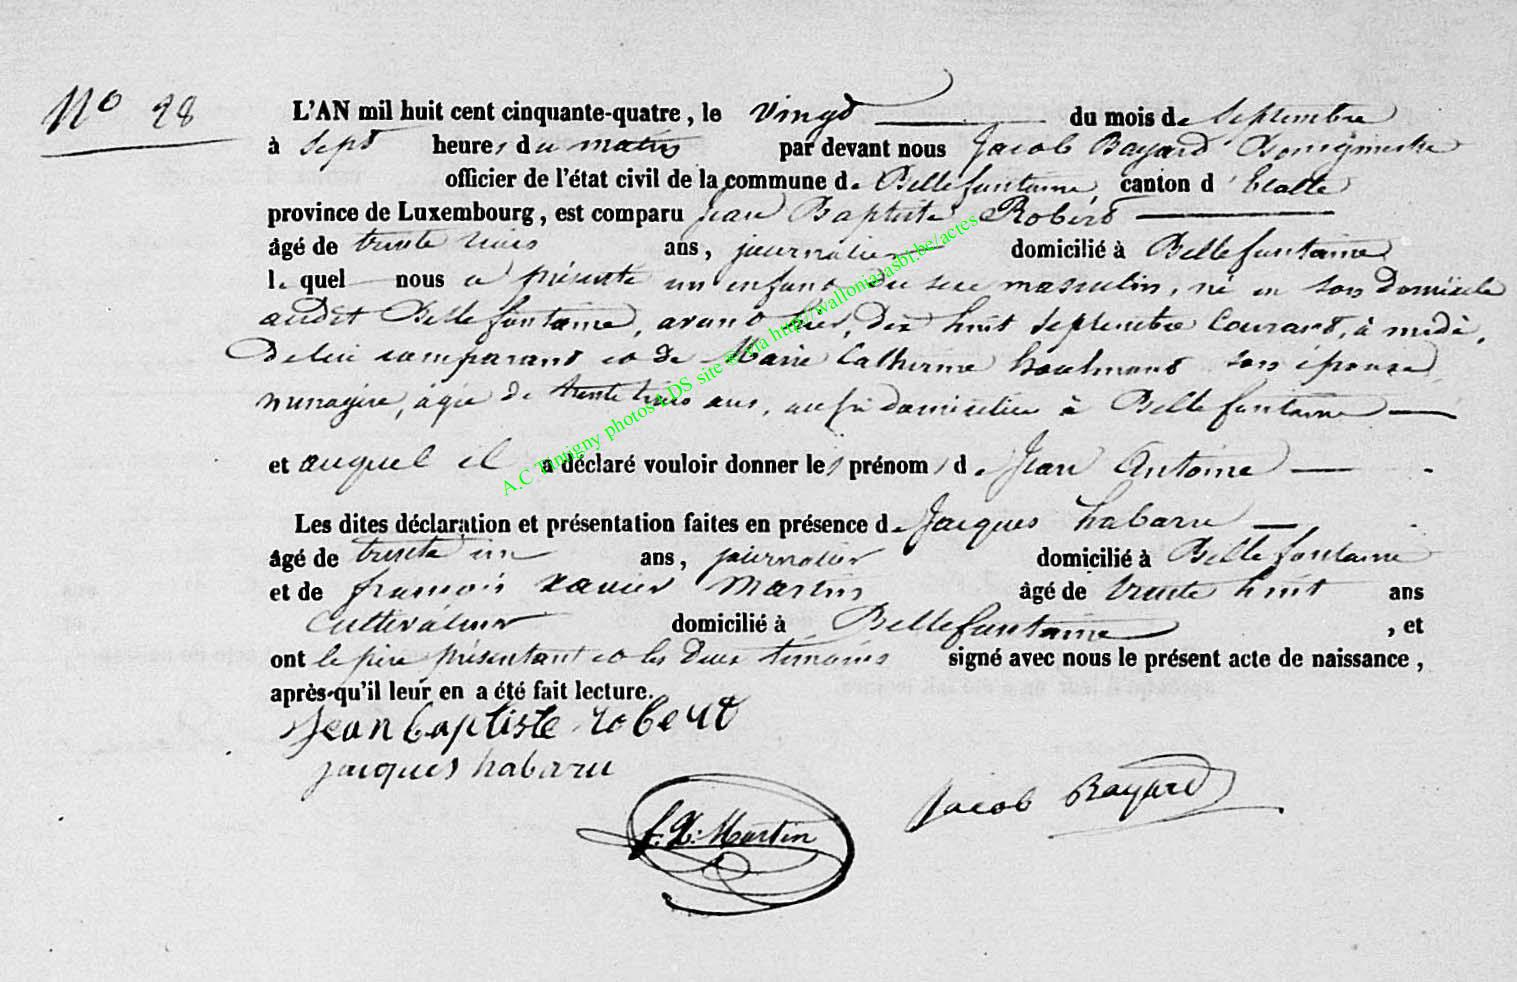 No 28
L'AN mil huit cent cinquante-quatre, le vingt du mois de Septembre
à sept heures du matin par devant nous Jacob Bayard Bourgmestre
officier de l'état civil de la commune de Bellefontaine canton d'Etalle
province de Luxembourg, est comparu Jean Baptiste Robert
âgé de trente trois ans, journalier domicilié à Bellefontaine
lequel nous a présenté un enfant du sexe masculin, né en son domicile
audit Bellefontaine, avant hier, dix huit septembre courant, à midi,
de lui comparant et de Marie Catherine son épouse
ménagère, agée de trente trois ans, aussi domiciliée à Bellefontaine
et auquel il a déclaré vouloir donner les prénoms de Jean Antoine
Les dites déclaration et présentation faites en présence de Jacques habaru
âgé de trente un ans, journalier domicilié à Bellefontaine
et de françois xavier Martin âgé de trente huit ans
Cultivateur domicilié à Bellefontaine, et
ont le père présentant et les deux témoins signé avec nous le présent acte de naissance,
après-qu'il leur en a été fait lecture.
Jean baptiste robert
jacques habaru
f. X. Martin
Jacob Bayard
A.C Tintigny photos LDS site via http://wallonia-asbl.be/actes